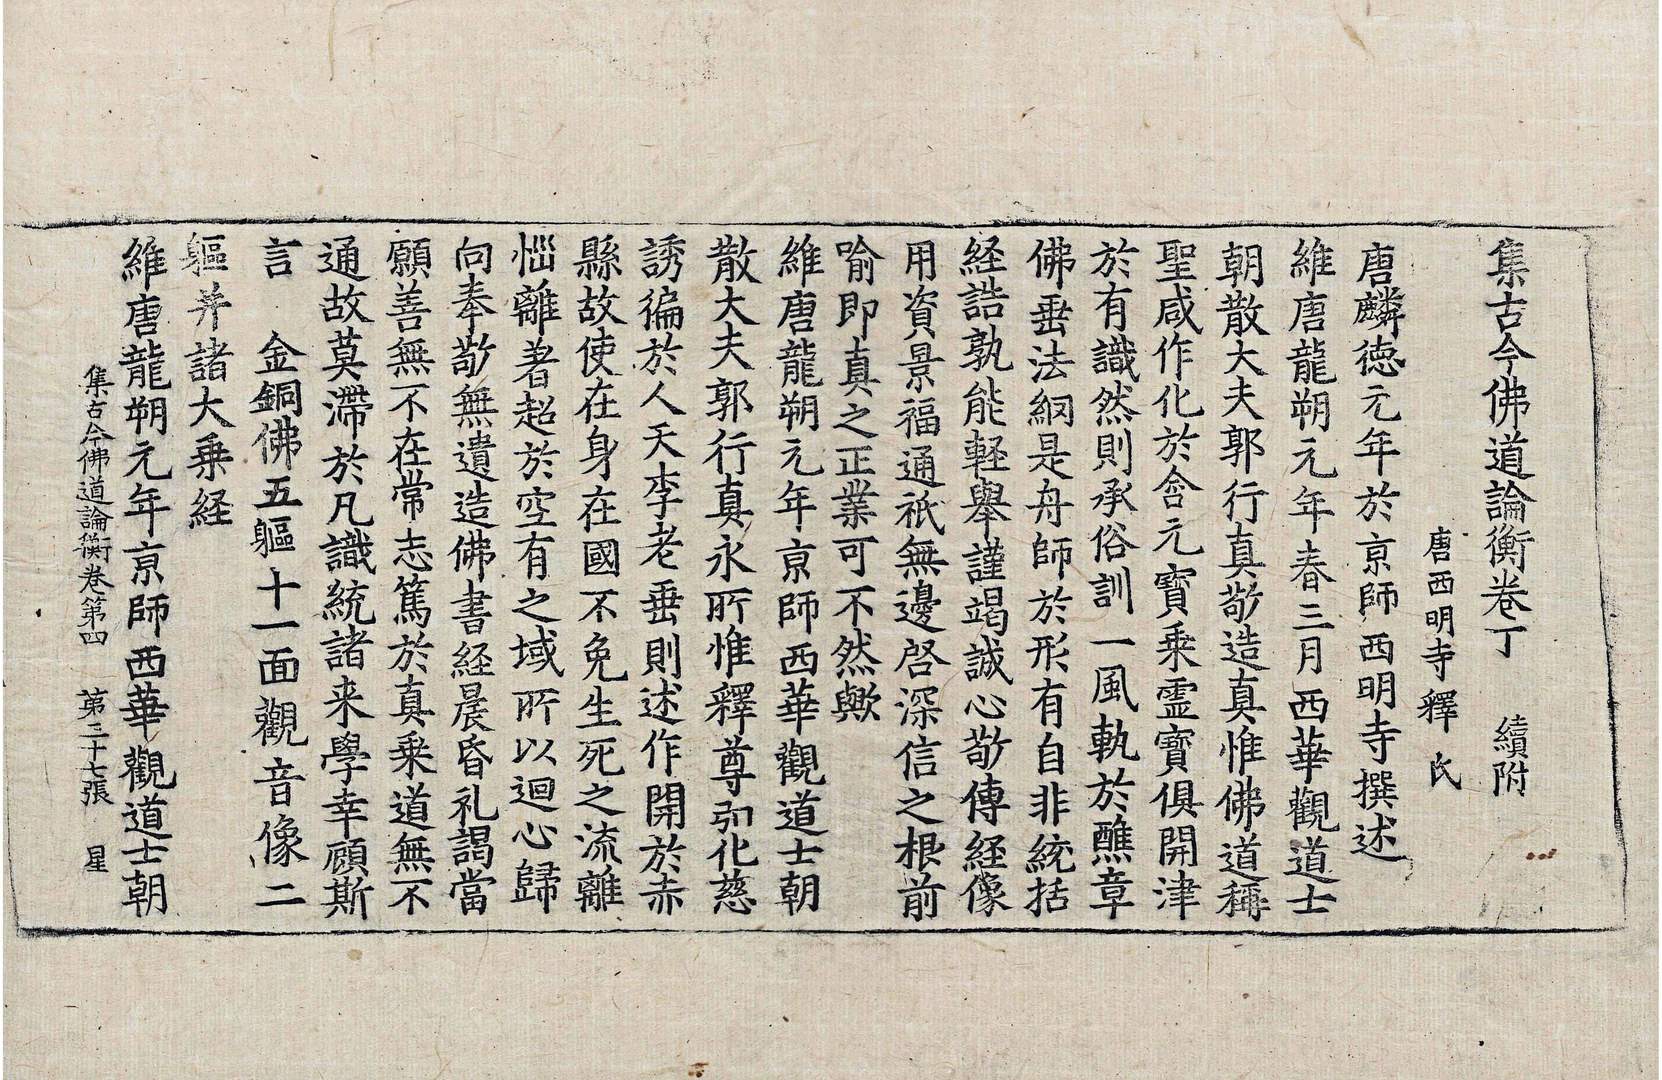 集古今佛道論衡卷丁　續附
唐西明寺釋氏
唐麟德元年於京師西明寺撰述
維唐龍朔元年春三月西華觀道士
朝散大夫郭行真敬造真惟佛道稱
聖咸作化於含元寶乘霊寶俱開津
於有識然則承俗訓一風軌於醮章
佛垂法網是舟師於形有自非統括
経誥孰能軽舉謹竭誠心敬傳経像
用資景福通祇無邊啓深信之根前
喻即真之正業可不然歟
維唐龍朔元年京師西華觀道士朝
散大夫郭行真永所惟釋尊引化慈
誘徧於人天李老垂則述作開於赤
縣故使在身在國不免生死之流離
惱離著超於空有之域所以迴心歸
向奉敬無遺造佛書経晨昏礼謁當
願善無不在常志篤於真乘道無不
通故莫滯於凡識統諸来學幸顧斯
言　金銅佛五軀十一面觀音像二
軀并諸大乘経
集古今佛道論衡卷第四　第二十七張　星
維唐龍朔元年京師西華觀道士朝